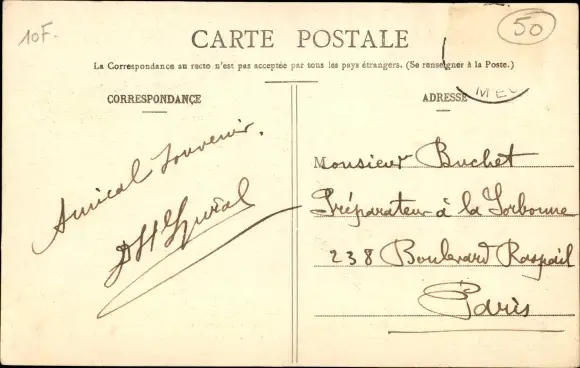 10F.
50
CARTE POSTALE
La Correspondance au recto n'est pas acceptée par tous les pays étrangers. (Se renseigner à la Poste.)
CORRESPONDANCE
Amical Souvenir.
ADRESSE
Monsieur Buchet
Préparateur à la Sorbonne
238 Boulevard Raspail
Paris